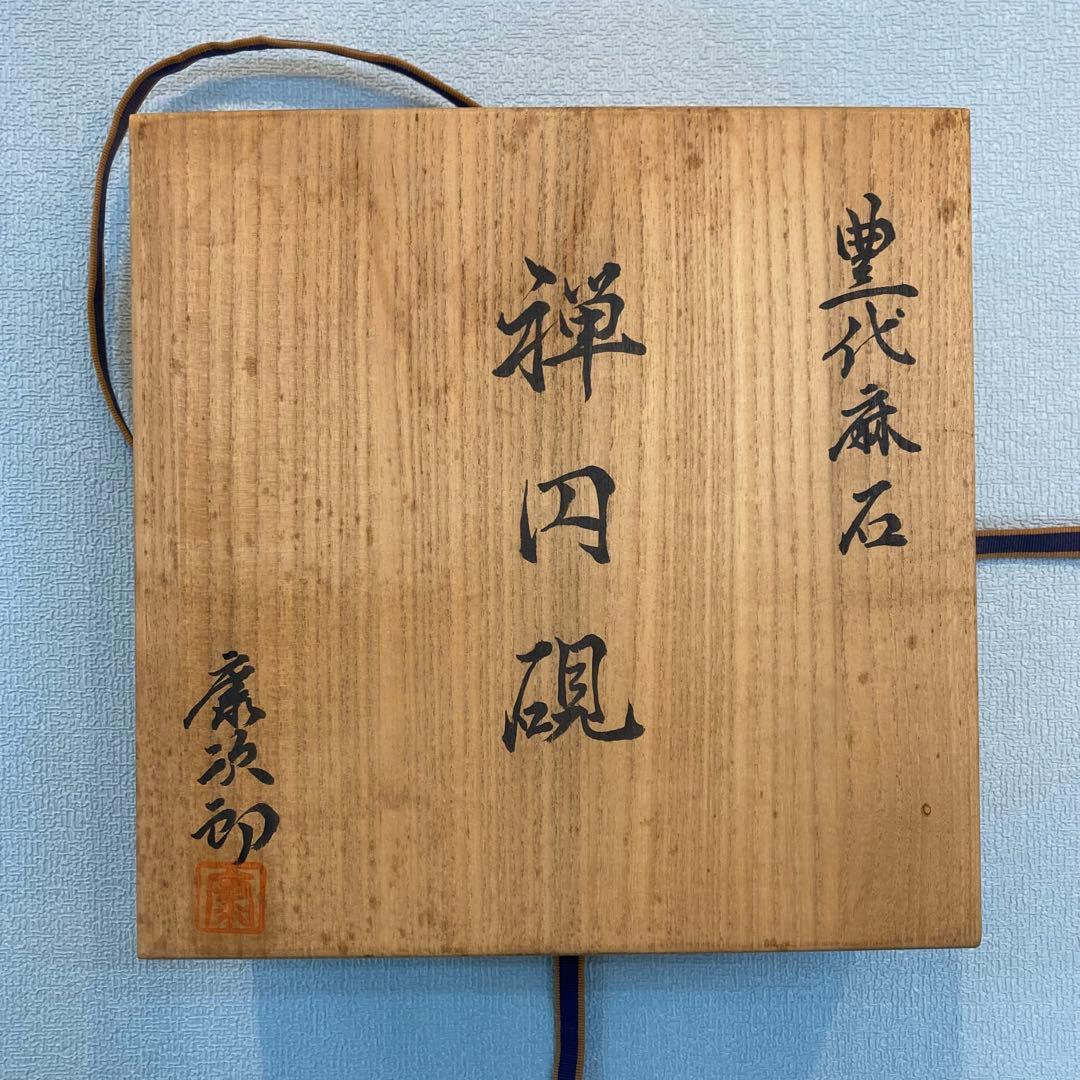 豊代麻石
禅円硯
康次郎